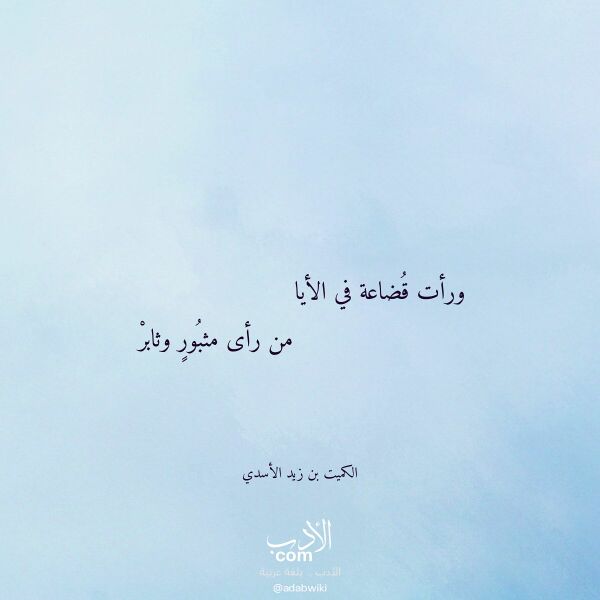 ورأت قُضاعة في الأيا
من رأى مثبُورٍ وثابرْ
الكميت بن زيد الأسدي
الأدب
com
الأدب .. بلغة عربية
@adabwiki